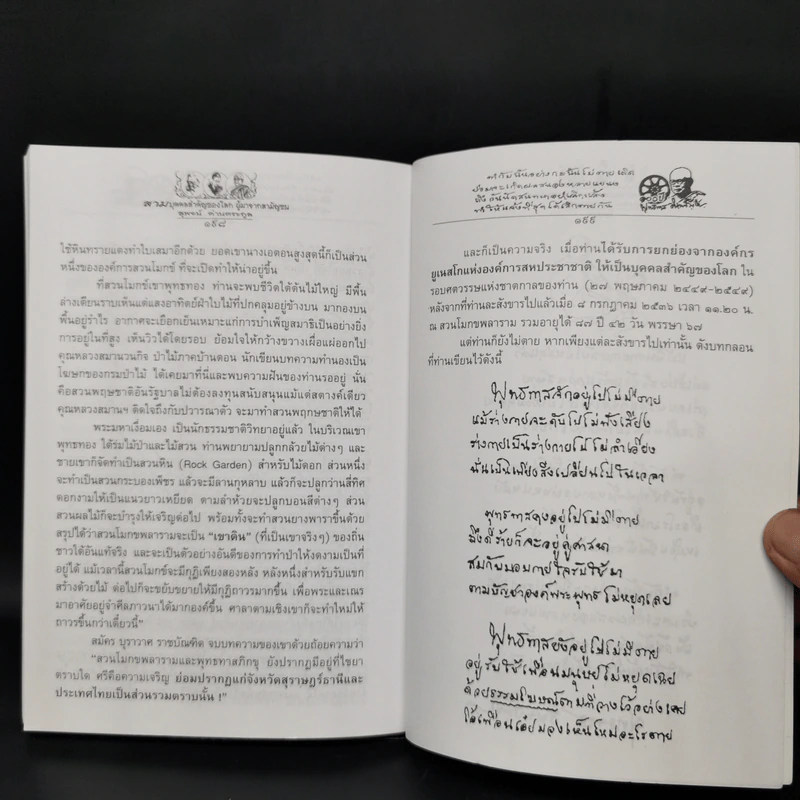 สามบุคคลสำคัญของโลก ผู้มาจากสามัญชน
สุพจน์ ด่านตระกูล
๑๙๘
ใช้หินทรายแดงทำใบเสมาอีกด้วย ยอดเขานางเอตอนสูงสุดนี้ก็เป็นส่วน
หนึ่งขององค์การสวนโมกข์ ที่จะเปิดทำให้น่าอยู่ขึ้น
ที่สวนโมกข์เขาพุทธทอง ท่านจะพบชีวิตใต้ต้นไม้ใหญ่ มีพื้น
ล่างเตียนราบเห็นแต่แสงอาทิตย์ฝ่าใบไม้ที่ปกคลุมอยู่ข้างบน มากองบน
พื้นอยู่รำไร อากาศจะเยือกเย็นเหมาะแก่การบำเพ็ญสมาธิเป็นอย่างยิ่ง
การอยู่ในที่สูง เห็นวิวได้โดยรอบ ย้อมใจให้กว้างขวางเผื่อแผ่ออกไป
คุณหลวงสมานวนกิจ ป่าไม้ภาคบ้านดอน นักเขียนบทความทำนองเป็น
โฆษกของกรมป่าไม้ ได้เคยมาที่นี่และพบความฝันของท่านรออยู่ นั่น
คือสวนพฤษชาติอันรัฐบาลไม่ต้องลงทุนสนับสนุนแม้แต่สตางค์เดียว
คุณหลวงสมานฯ ติดใจถึงกับปวารณาตัว จะมาทำสวนพฤกษชาติให้ได้
พระมหาเงื่อมเอง เป็นนักธรรมชาติวิทยาอยู่แล้ว ในบริเวณเขา
พุทธทอง ใต้ร่มไม้ป่าและไม้สวน ท่านพยายามปลูกกล้วยไม้ต่างๆ และ
ชายเขาก็จัดทำเป็นสวนหิน (Rock Garden) สำหรับไม้ดอก ส่วนหนึ่ง
จะทำเป็นสวนกระบองเพ็ชร แล้วจะมีลานกุหลาบ แล้วก็จะปลูกว่านสี่ทิศ
ดอกงามให้เป็นแนวยาวเหยียด ตามลำห้วยจะปลูกบอนสีต่างๆ ส่วน
สวนผลไม้ก็จะบำรุงให้เจริญต่อไป พร้อมทั้งจะทำสวนยางพาราขึ้นด้วย
สรุปได้ว่าสวนโมกขพลารามจะเป็น "เขาดิน" (ที่เป็นเขาจริงๆ) ของถิ่น
ชาวใต้อันแท้จริง และจะเป็นตัวอย่างอันดีของการทำป่าให้งดงามเป็นที่
อยู่ได้ แม้เวลานี้สวนโมกข์จะมีกุฏิเพียงสองหลัง หลังหนึ่งสำหรับรับแขก
สร้างด้วยไม้ ต่อไปก็จะขยับขยายให้มีกุฏิถาวรมากขึ้น เพื่อพระและเณร
มาอาศัยอยู่จำศีลภาวนาได้มากองค์ขึ้น ศาลาตามเชิงเขาก็จะทำใหม่ให้
ถาวรขึ้นกว่าเดี๋ยวนี้"
สมัคร บุราวาศ ราชบัณฑิต จบบทความของเขาด้วยถ้อยความว่า
"สวนโมกขพลารามและพุทธทาสภิกขุ ยังปรากฏมีอยู่ที่ไชยา
ตราบใด ศรีคือความเจริญ ย่อมปรากฏแก่จังหวัดสุราษฎร์ธานีและ
ประเทศไทยเป็นส่วนรวมตราบนั้น !"
๑๙๙
และก็เป็นความจริง เมื่อท่านได้รับการยกย่องจากองค์กร
ยูเนสโกแห่งองค์การสหประชาชาติ ให้เป็นบุคคลสำคัญของโลก ใน
รอบศตวรรษแห่งชาตกาลของท่าน (๒๗ พฤษภาคม ๒๔๔๙-๒๕๔๙)
หลังจากที่ท่านละสังขารไปแล้วเมื่อ ๘ กรกฎาคม ๒๕๓๖ เวลา ๑๑.๒๐ น.
ณ สวนโมกขพลาราม รวมอายุได้ ๘๗ ปี ๔๒ วัน พรรษา ๖๗
แต่ท่านก็ยังไม่ตาย หากเพียงแต่ละสังขารไปเท่านั้น ดังบทกลอน
ที่ท่านเขียนไว้ดังนี้
พุทธทาสจักอยู่ไปไม่มีตาย
แม้ร่างกายจะดับไปไม่ฟังเสียง
ร่างกายเป็นร่างกายไปไม่ลำเอียง
นั่นเป็นเพียงสิ่งเปลี่ยนไปในเวลา
พุทธทาสคงอยู่ไปไม่มีตาย
ถึงดีร้ายก็จะอยู่คู่ศาสนา
สมกับมอบกายใจรับใช้มา
ตามบัญชาองค์พระพุทธไม่หยุดเลย
พุทธทาสยังอยู่ไปไม่มีตาย
อยู่รับใช้เพื่อนมนุษย์ไม่หยุดเฉย
ด้วยธรรมโฆษณ์ตามที่วางไว้อย่างเคย
โอ้เพื่อนเอ๋ยมองเห็นไหมอะไรตาย